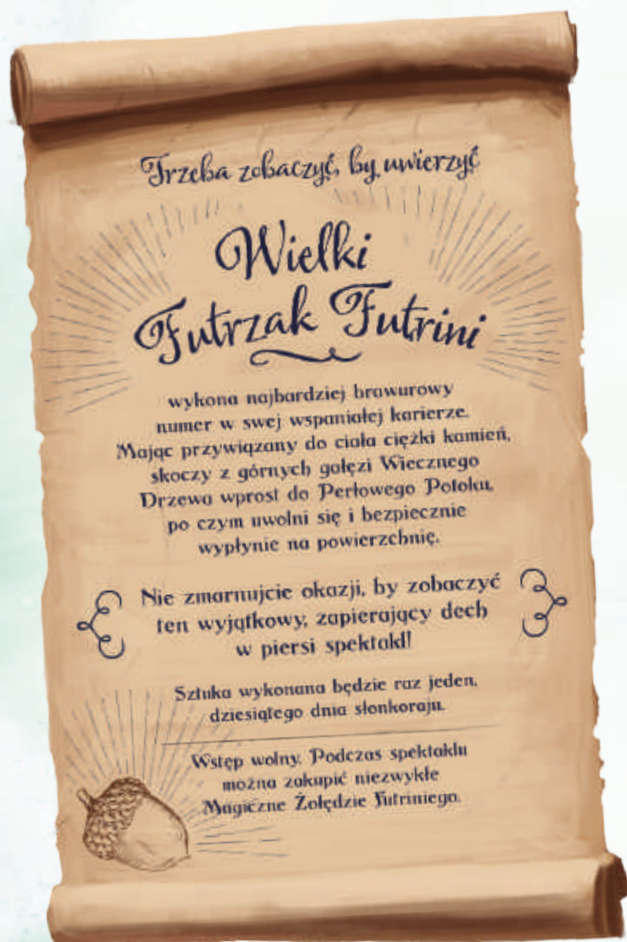 Trzeba zobaczyć, by uwierzyć
Wielki
Futrzak Futrini
wykona najbardziej brawurowy
numer w swej wspaniałej karierze.
Mając przywiązany do ciała ciężki kamień,
skoczy z górnych gałęzi Wiecznego
Drzewa wprost do Perłowego Potoku,
po czym uwolni się i bezpiecznie
wypłynie na powierzchnię.
Nie zmarnujcie okazji, by zobaczyć
ten wyjątkowy, zapierający dech
w piersi spektakl!
Sztuka wykonana będzie raz jeden,
dziesiątego dnia słonkoraju.
Wstęp wolny. Podczas spektaklu
można zakupić niezwykłe
Magiczne Żołędzie Futriniego.